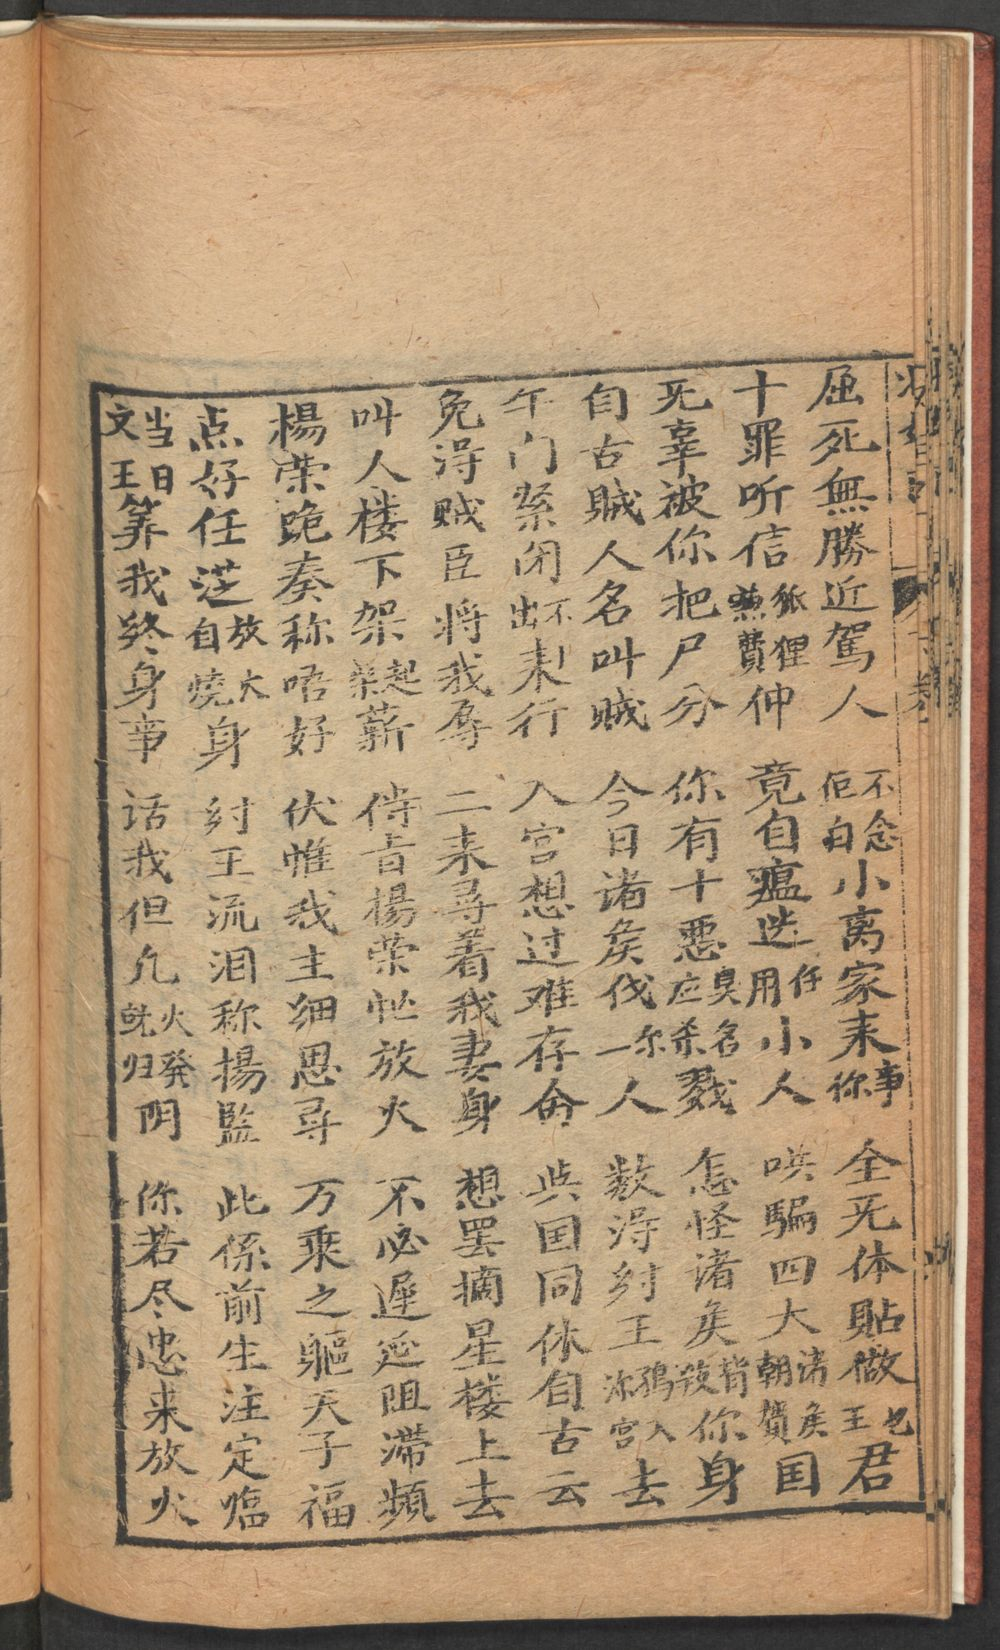 屈死無勝近駕人 不念佢自小离家来事你 全无体貼做也王君
十罪听信狐狸兼費仲 竟自瘟迷任用小人 哄騙四大诸矦朝賀国
无辜被你把尸分 你有十惡臭名应杀戮 怎怪诸矦背叛你身
自古贼人名叫贼 今日诸矦伐你一人 数淂纣王鴉入你宫去
午门紧闭不出来行 入宫想过难存命 与国同休自古云
免淂贼臣将我辱 二来寻着我妻身 想罢摘星楼上去
叫人楼下架起柴薪 俦旨楊荣忙放火 不必遲延阻滞頻
楊荣跪奏称唔好 伏惟我主细思寻 万乘之軀天子福
点好任泛放火自燒身 纣王流泪称楊監 此係前生注定临
当日文王算我终身事 话我但凡火發就归阴 你若尽忠来放火